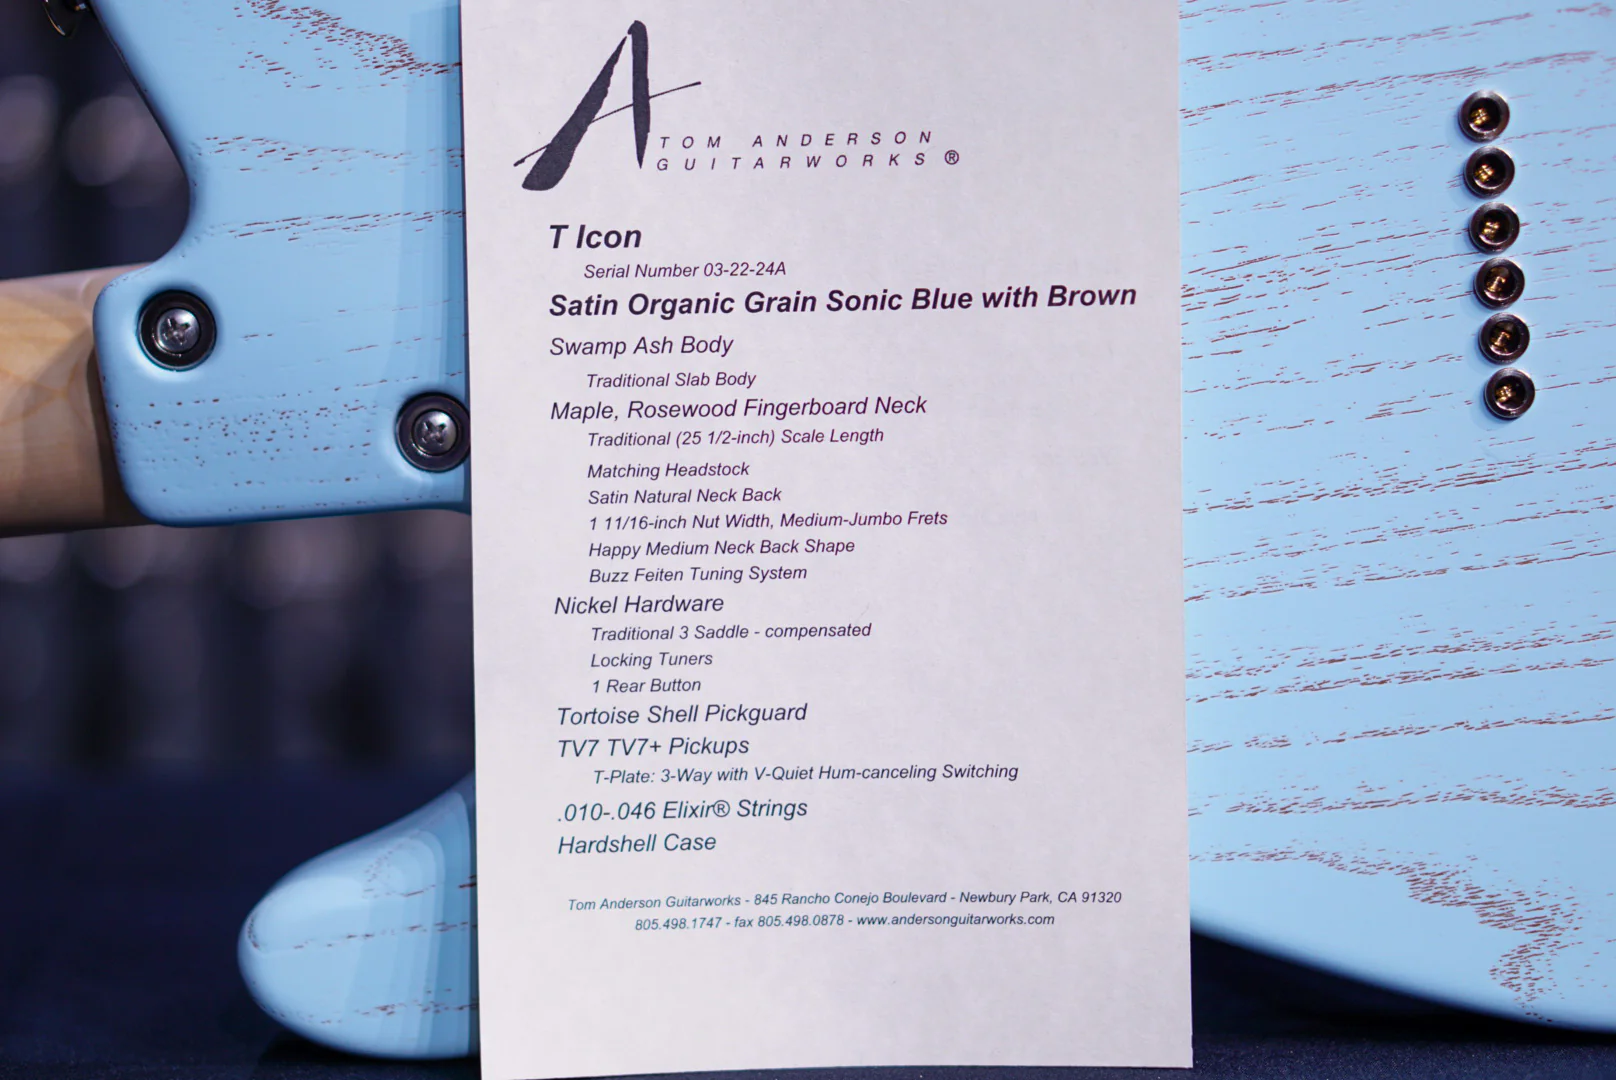 TOM ANDERSON
GUITARWORKS ®
T Icon
Serial Number 03-22-24A
Satin Organic Grain Sonic Blue with Brown
Swamp Ash Body
Traditional Slab Body
Maple, Rosewood Fingerboard Neck
Traditional (25 1/2-inch) Scale Length
Matching Headstock
Satin Natural Neck Back
1 11/16-inch Nut Width, Medium-Jumbo Frets
Happy Medium Neck Back Shape
Buzz Feiten Tuning System
Nickel Hardware
Traditional 3 Saddle - compensated
Locking Tuners
1 Rear Button
Tortoise Shell Pickguard
TV7 TV7+ Pickups
T-Plate: 3-Way with V-Quiet Hum-canceling Switching
.010-.046 Elixir® Strings
Hardshell Case
Tom Anderson Guitarworks - 845 Rancho Conejo Boulevard - Newbury Park, CA 91320
805.498.1747 - fax 805.498.0878 - www.andersonguitarworks.com